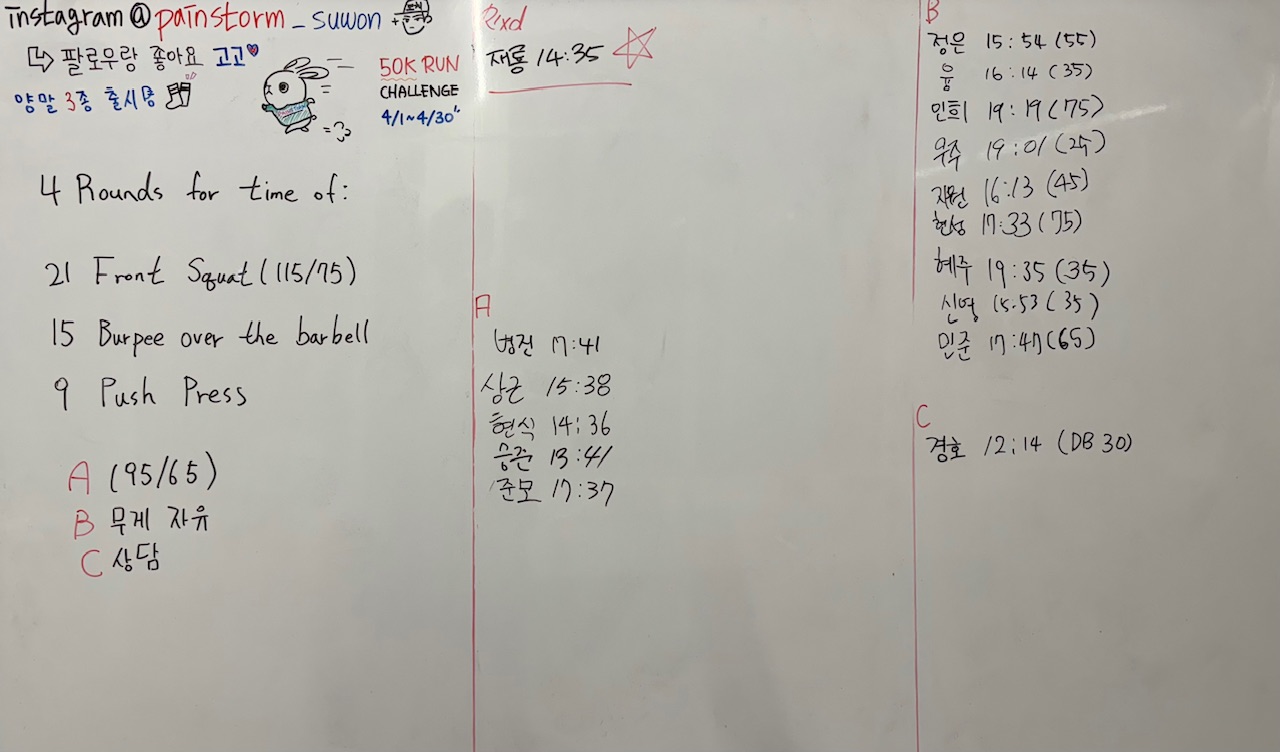 instagram@painstorm_suwon
팔로우랑 좋아요 고고
양말 3종 출시중
50K RUN
CHALLENGE
4/1~4/30"
4 Rounds for time of:
21 Front Squat (115/75)
15 Burpee over the barbell
9 Push Press
A (95/65)
B 무게 자유
C 상담
Rxd
재룡 14:35
A
병진 17:41
상근 15:38
현식 14:36
승준 13:41
준모 17:37
B
정은 15:54 (55)
윰 16:14 (35)
민희 19:19 (75)
우주 19:01
지원 16:13 (45)
현성 17:33 (75)
혜주 19:35 (35)
신영 15:53 (35)
민준 17:47 (65)
C
경호 12:14 (DB 30)